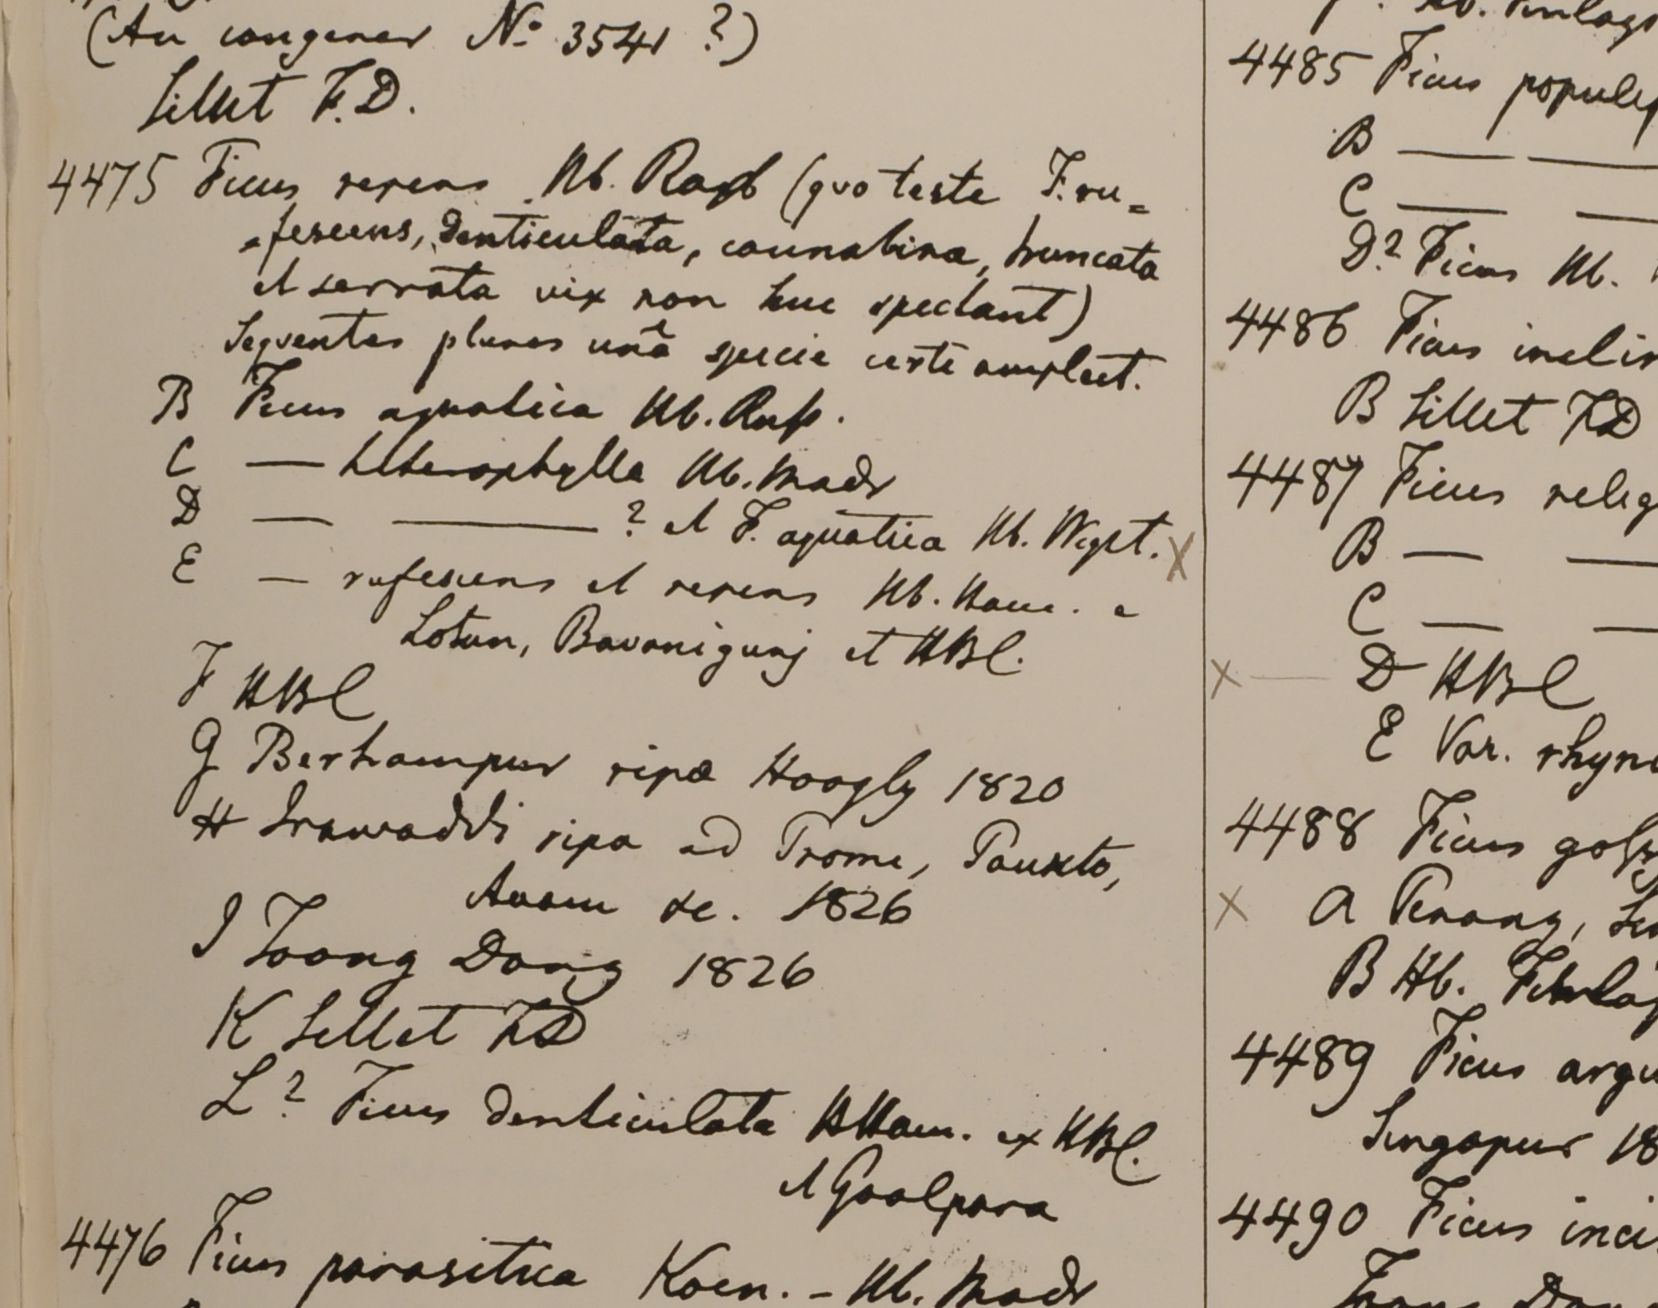 (An congener No. 3541 ?)
Sillet F.D.
4475 Ficus repens Hb. Roxb (quo teste F. ru=
=fescens, denticulata, cannabina, truncata
et serrata vix non huc spectant)
Sequentes plures unâ specie certe amplect.
B Ficus aquatica Hb. Russ.
C — heterophylla Hb. Madr
D — — ? et F. aquatica Hb. Wight. X
E — rufescens et repens Hb. Ham. e
Lotun, Bavanigunj et HBC.
F HBC
G Berhampur ripæ Hoogly 1820
H Irawaddi ripa ad Prome,
Avam &c. 1826
I Toong Dong 1826
K Sillet FD
L? Ficus denticulata HHam. ex HBC.
et Goalpara
4476 Ficus parasitica Koen. - Hb. Madr
4485 Ficus
B — —
C — —
D? Ficus Hb.
4486 Ficus
B Sillet FD
4487 Ficus relig
B — —
C — —
X — D HBC
E Var.
4488 Ficus
X a Penang,
B Hb.
4489 Ficus argu
Singapur 18
4490 Ficus
Toong Dong